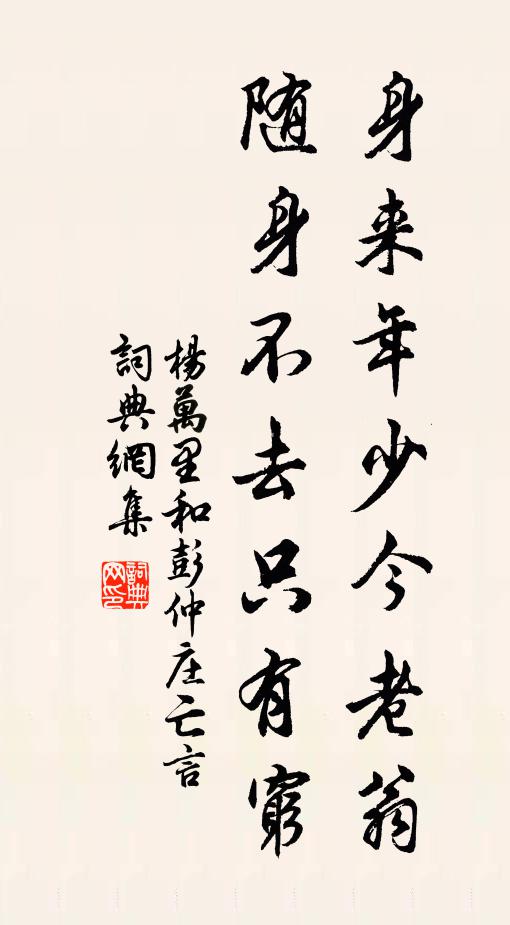 身来年少今老翁
随身不去只有窮
楊萬里和彭仲庄亡言
詞典網集
詞典网印